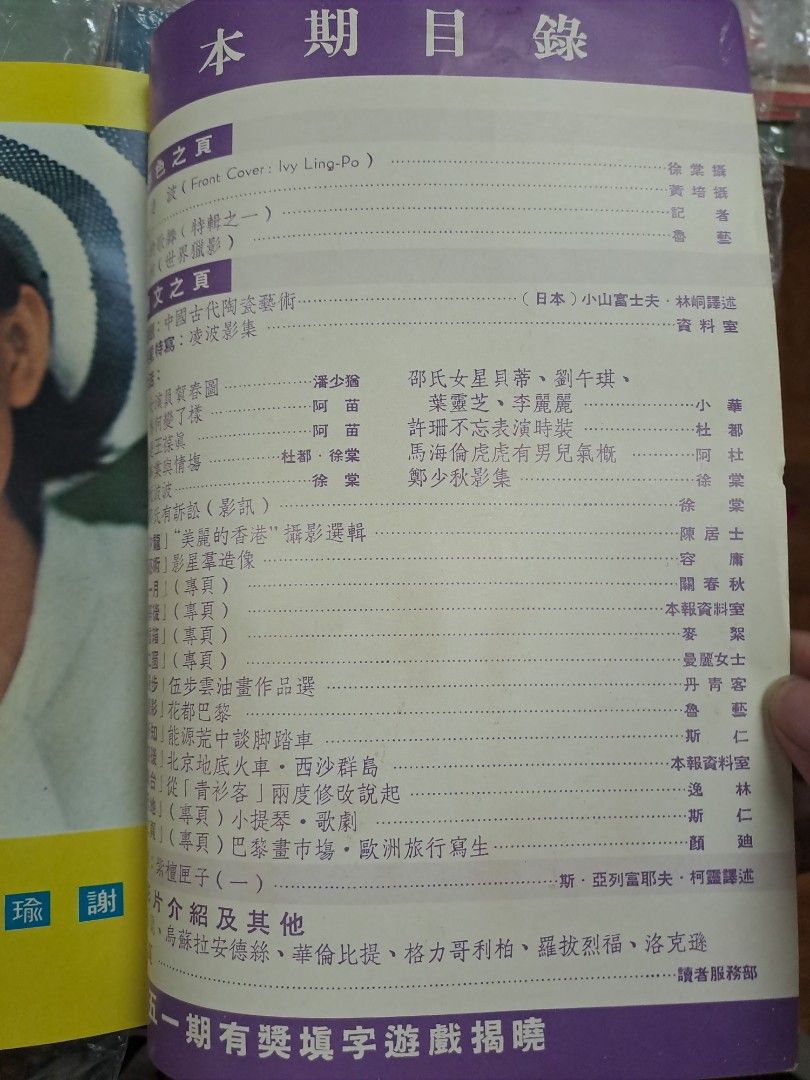 本期目錄
色之頁
波(Front Cover: Ivy Ling-Po) 徐棠攝
黃培攝
歌舞(特輯之一) 記者
(世界獵影) 魯藝
文之頁
:中國古代陶瓷藝術 (日本)小山富士夫・林峒譯述
特寫:凌波影集 資料室
演員賀春圖 潘少猶
何變了樣 阿苗
阿苗
與情塲 杜都・徐棠
波 徐棠
邵氏女星貝蒂、劉午琪、
葉靈芝、李麗麗 小華
許珊不忘表演時裝 杜都
馬海倫虎虎有男兒氣概 阿杜
鄭少秋影集 徐棠
氏有訴訟(影訊) 徐棠
龍」“美麗的香港”攝影選輯 陳居士
術」影星羣造像 容庸
一月」(專頁) 關春秋
後」(專頁) 本報資料室
箱」(專頁) 麥絮
」(專頁) 曼麗女士
步」伍步雲油畫作品選 丹青客
影」花都巴黎 魯藝
知」能源荒中談脚踏車 斯仁
後」北京地底火車・西沙群島 本報資料室
台」從「青衫客」兩度修改說起 逸林
地」(專頁)小提琴・歌劇 斯仁
」(專頁)巴黎畫市塲・歐洲旅行寫生 顏廸
:紫檀匣子(一) 斯・亞列富耶夫・柯靈譯述
片介紹及其他
、烏蘇拉安德絲、華倫比提、格力哥利柏、羅拔烈福、洛克遜
讀者服務部
五一期有獎塡字遊戲揭曉
瑜 謝